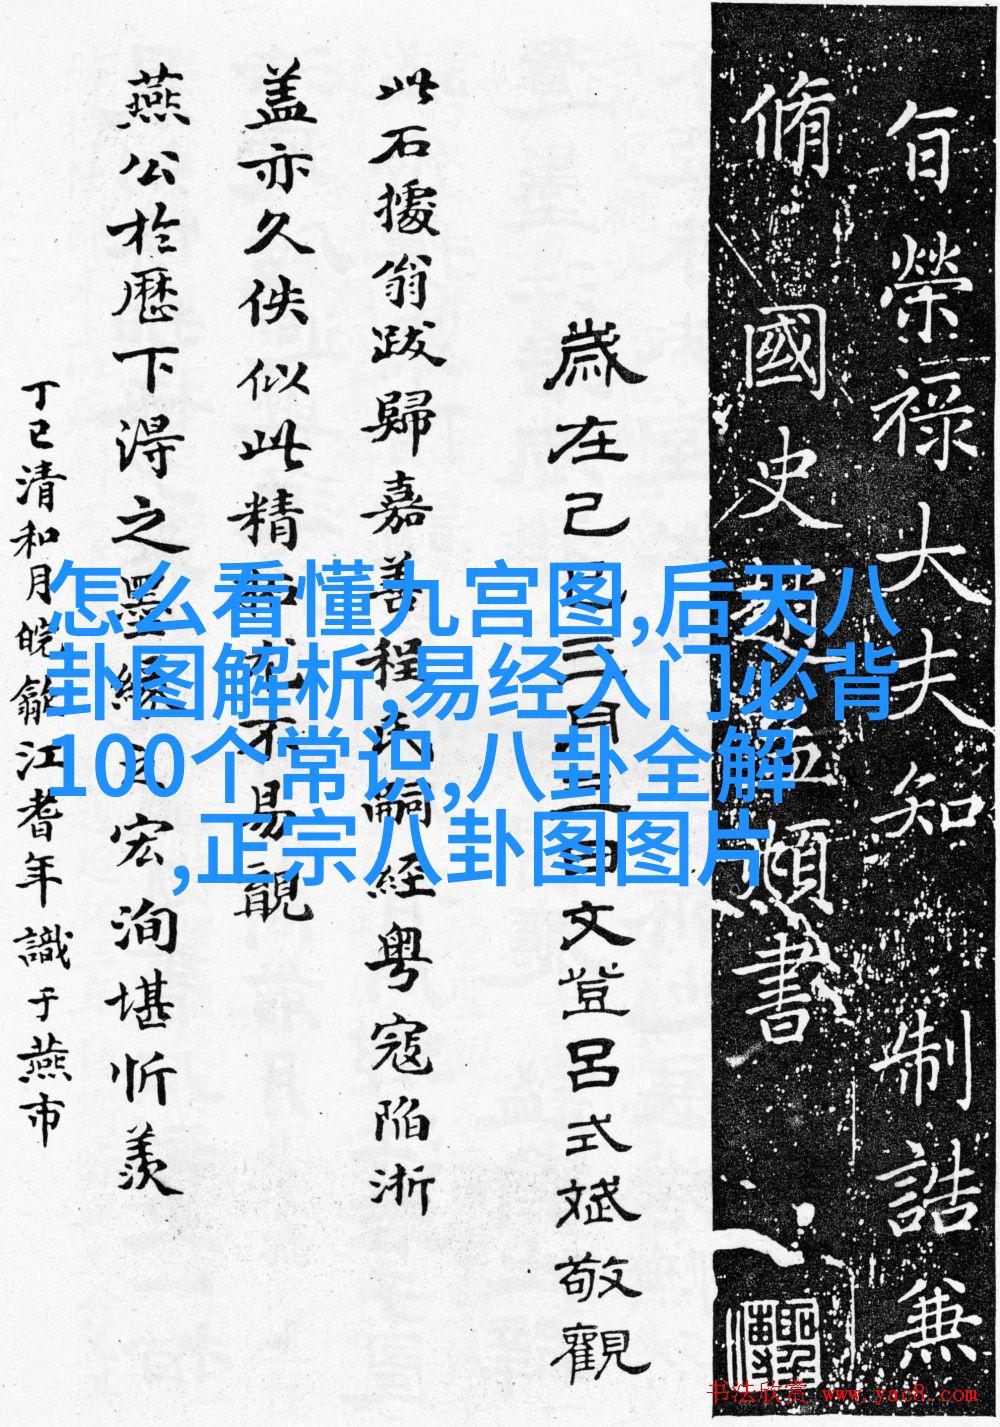 旨榮禄大夫知 制誥兼
脩國史趙孟頫書
歲在己巳三月三日文登呂式斌敬觀
此石據翁跋歸嘉善程氏嗣經粵寇陷淅
盖亦久佚似此精拓尤不易覯
燕公於歷下淂之墨緣宏洵堪忻羨
丁巳清和月皖歙江耆年識于燕市
怎么看懂九宫图,后天八
卦图解析,易经入门必背
100个常识,八卦全解
,正宗八卦图图片
书法欣赏 www.yac8.com